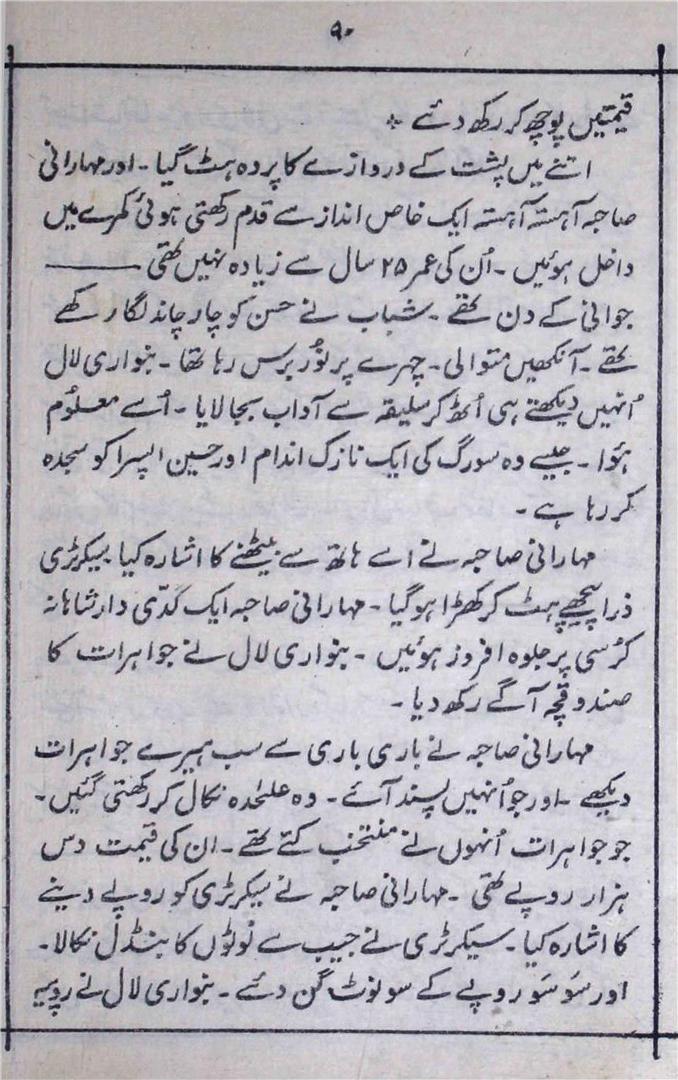 ۹۰
قیمتیں پوچھ کر رکھ دئے *
اتنے میں پشت کے دروازے کا پردہ ہٹ گیا ۔ اور مہارانی
صاحبہ آہستہ آہستہ ایک خاص انداز سے قدم رکھتی ہوئی کمرے میں
داخل ہوئیں ۔ اُن کی عمر ۲۵ سال سے زیادہ نہیں تھی ——
جوانی کے دن تھے ۔ شباب نے حسن کو چار چاند لگا رکھے
تھے ۔ آنکھیں متوالی ۔ چہرے پر نُور برس رہا تھا ۔ بنواری لال
اُنہیں دیکھتے ہی اُٹھ کر سلیقہ سے آداب بجا لایا ۔ اُسے معلُوم
ہُوا ۔ جیسے وہ سورگ کی ایک نازک اندام اور حسین اپسرا کو سجدہ
کر رہا ہے ۔
مہارانی صاحبہ نے اسے ہاتھ سے بیٹھنے کا اشارہ کیا سیکرٹری
ذرا پیچھے ہٹ کر کھڑا ہو گیا ۔ مہارانی صاحبہ ایک گدّی دار شاہانہ
کُرسی پر جلوہ افروز ہوئیں ۔ بنواری لال نے جواہرات کا
صندوقچہ آگے رکھ دیا ۔
مہارانی صاحبہ نے باری باری سے سب ہیرے جواہرات
دیکھے ۔ اور جو اُنہیں پسند آئے ۔ وہ علیٰحدہ نکال کر رکھتی گئیں ۔
جو جواہرات اُنہوں نے منتخب کئے تھے ۔ ان کی قیمت دس
ہزار روپے تھی ۔ مہارانی صاحبہ نے سیکرٹری کو روپے دینے
کا اشارہ کیا ۔ سیکرٹری نے جیب سے نوٹوں کا بنڈل نکالا ۔
اور سَو سَو روپے کے سو نوٹ گن دئے ۔ بنواری لال نے روپیہ